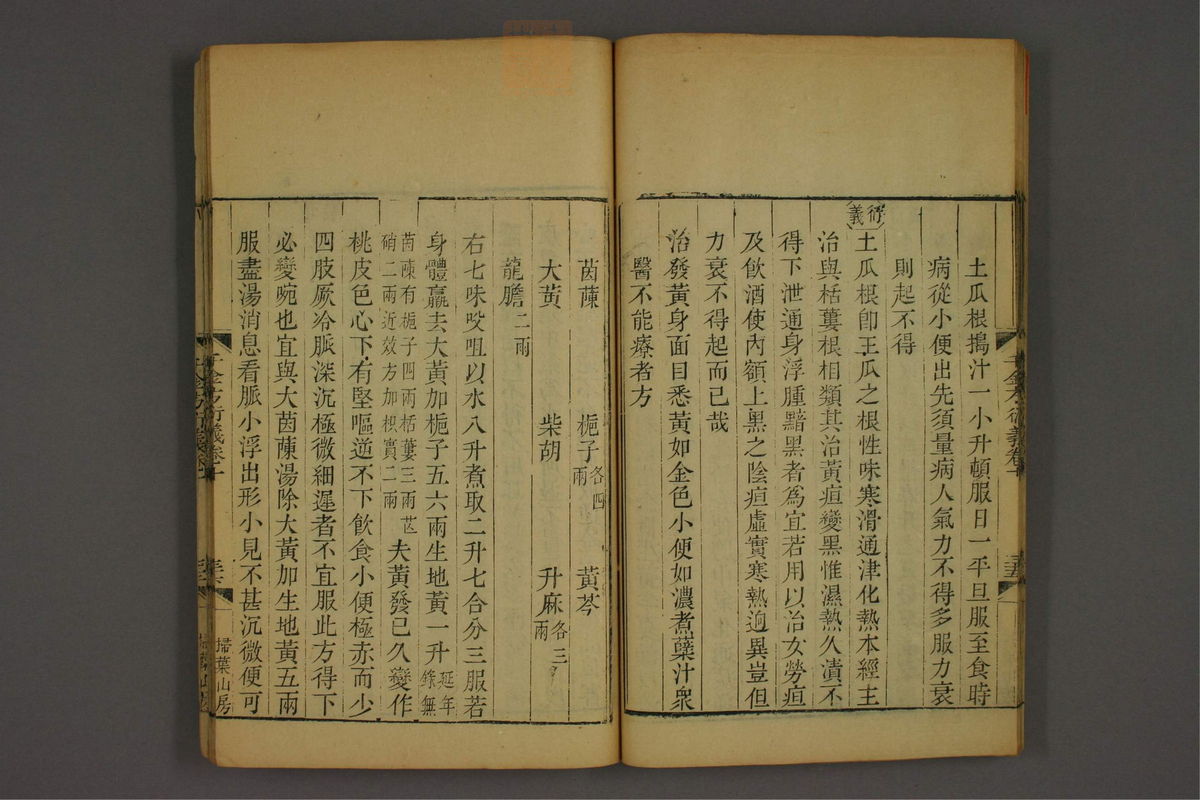 土瓜根搗汁一小升頓服日一平旦服至食時
病從小便出先須量病人氣力不得多服力衰
則起不得
衍義
土瓜根卽王瓜之根性味寒滑通津化熱本經主
治與栝蔞根相類其治黃疸變黑惟濕熱久漬不
得下泄通身浮腫黯黑者爲宜若用以治女勞疸
及飮酒使內額上黑之陰疸虛實寒熱逈異豈但
力衰不得起而已哉
治發黃身面目悉黃如金色小便如濃煮蘗汁衆
醫不能療者方
茵蔯 梔子各四兩 黃芩
大黃 柴胡 升麻各三兩
龍膽二兩
右七味㕮咀以水八升煮取二升七合分三服若
身體羸去大黃加梔子五六兩生地黃一升延年錄無
茵蔯有梔子四兩栝蔞三兩芒硝二兩近效方加枳實二兩夫黃發已久變作
桃皮色心下有堅嘔逆不下飮食小便極赤而少
四肢厥冷脈深沉極微細遲者不宜服此方得下
必變啘也宜與大茵蔯湯除大黃加生地黃五兩
服盡湯消息看脈小浮出形小見不甚沉微便可
千金方衍義卷十
三十五
千金方衍義卷十
三十六
掃葉山房